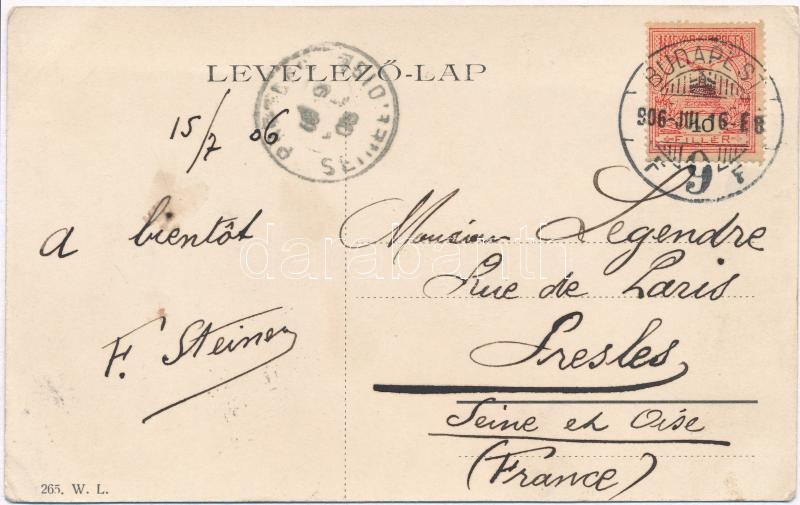 LEVELEZŐ-LAP
MAGYAR KIR. POSTA
10
FILLÉR
BUDAPEST
906 JUL 16 - E 8
F 9 F
PRESLES
SEINE-ET-OISE
15/7 06
a bientôt
F. Steiner
Monsieur Legendre
Rue de Paris
Presles
Seine et Oise
(France)
265. W. L.
darabanth